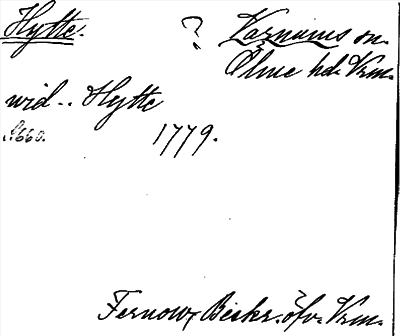 Hytte. ? Varnums sn.
Ölme hd. Vrm.
vid .. Hytte
s. 660. 1779.
Fernow, Beskr. öfv. Vrm.